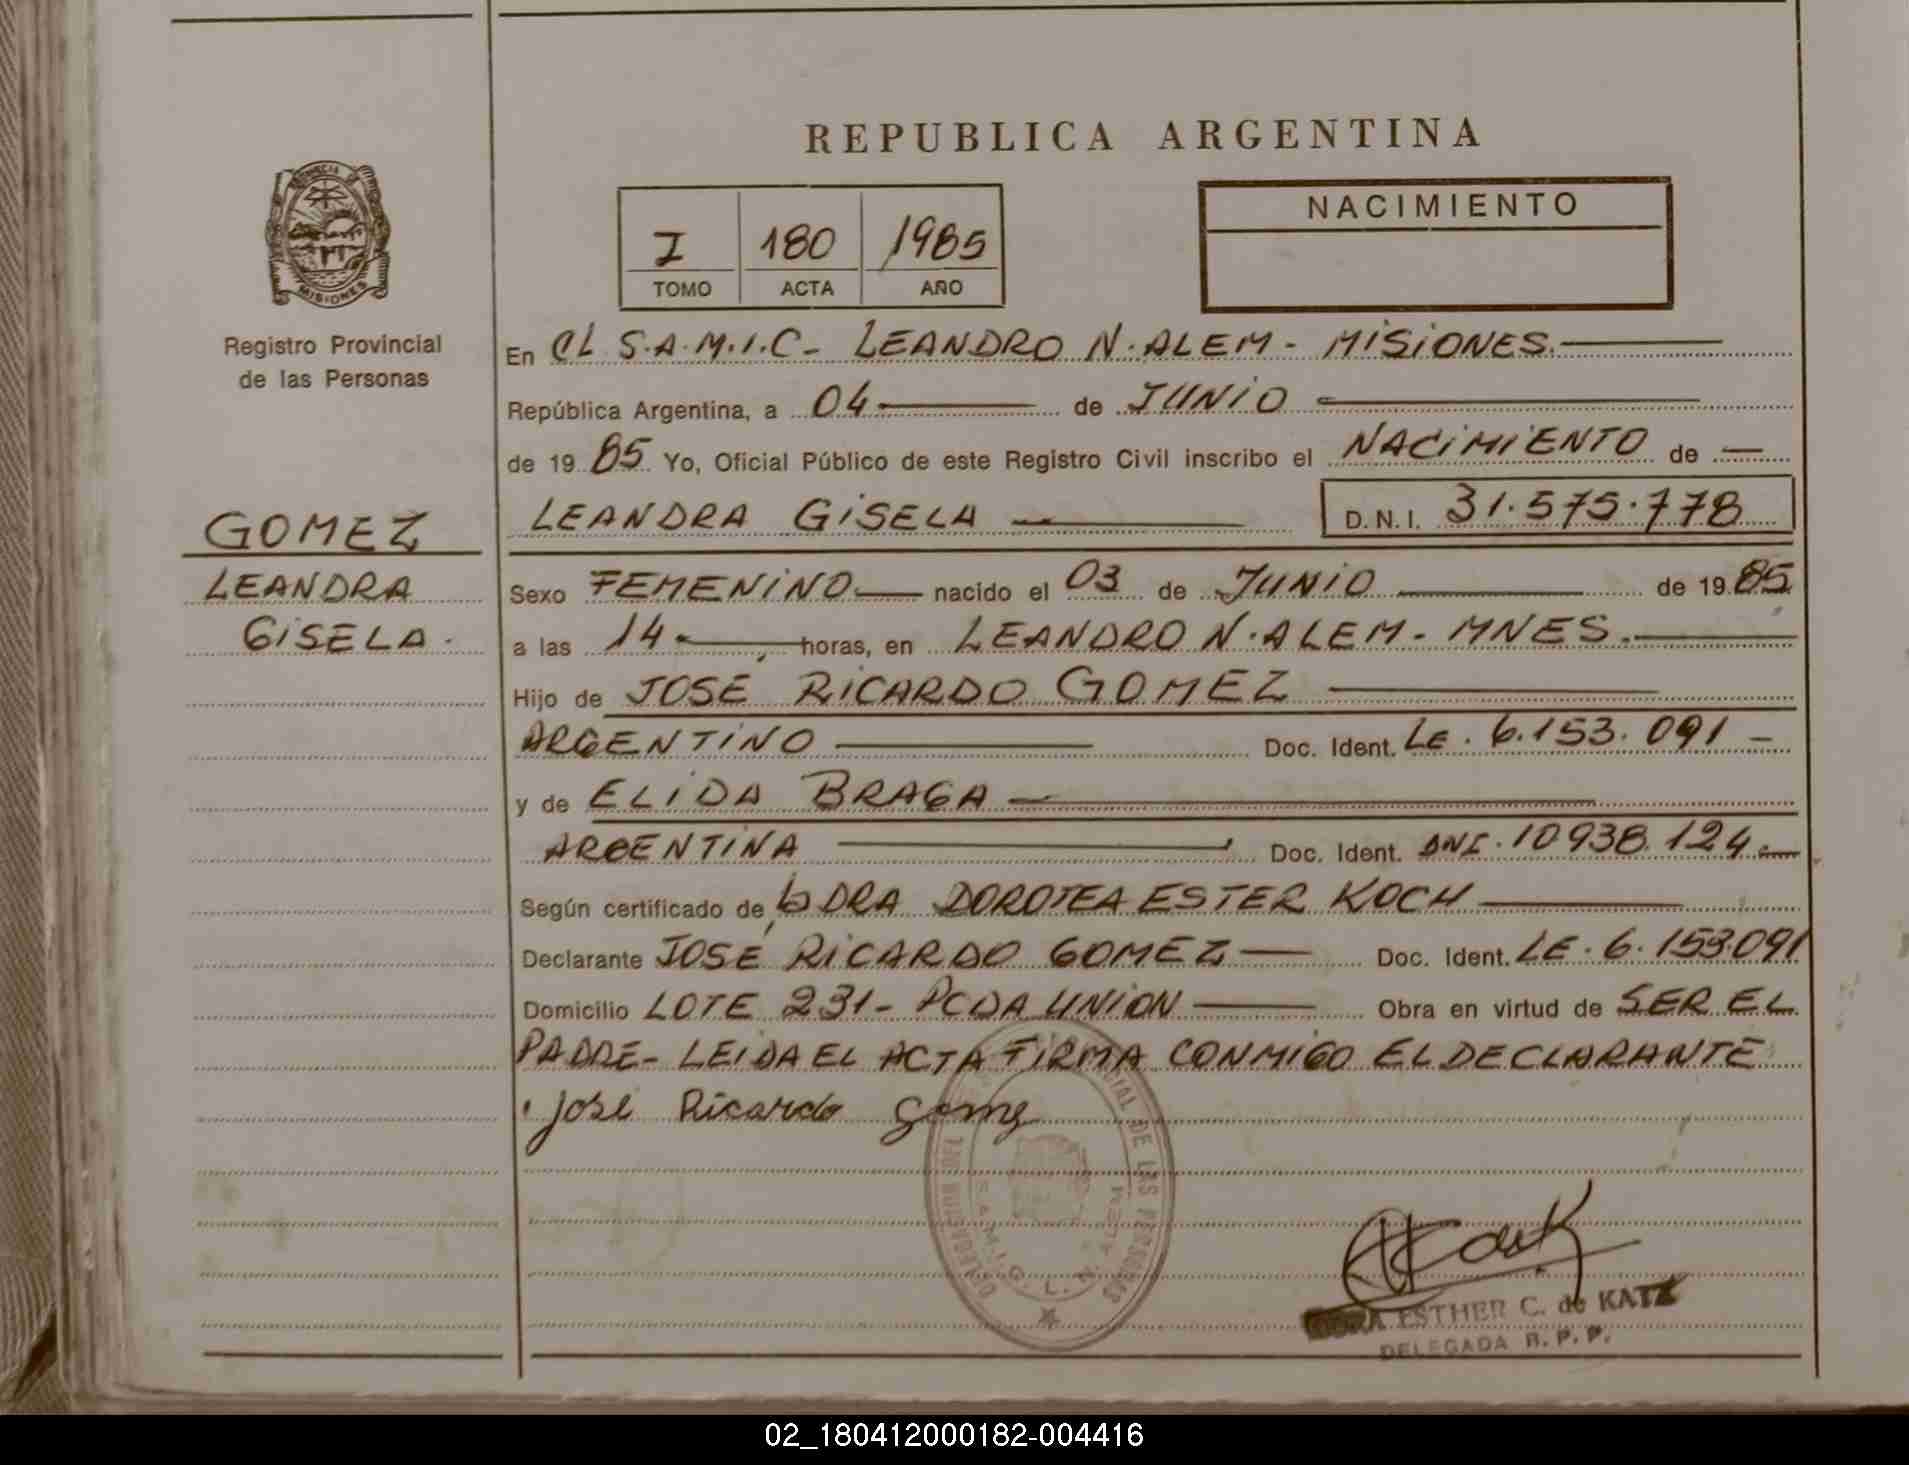 REPUBLICA ARGENTINA
PROVINCIA DE
MISIONES
Registro Provincial
de las Personas
I 180 1985
TOMO ACTA AÑO
NACIMIENTO
En EL S.A.M.I.C - LEANDRO N. ALEM - MISIONES.
República Argentina, a 04 de JUNIO
de 19 85 Yo, Oficial Público de este Registro Civil inscribo el NACIMIENTO de
LEANDRA GISELA D.N.I. 31.575.778
GOMEZ
LEANDRA
GISELA.
Sexo FEMENINO nacido el 03 de JUNIO de 19 85
a las 14 horas, en LEANDRO N. ALEM - MNES.
Hijo de JOSÉ RICARDO GOMEZ
ARGENTINO Doc. Ident. LE. 6.153.091 -
y de ELIDA BRAGA
ARGENTINA Doc. Ident. DNI. 10938.124
Según certificado de la DRA DOROTEA ESTER KOCH
Declarante JOSÉ RICARDO GOMEZ Doc. Ident. LE. 6.153.091
Domicilio LOTE 231 - PCDA UNION Obra en virtud de SER EL
PADRE - LEIDA EL ACTA FIRMA CONMIGO EL DECLARANTE
José Ricardo Gomez
DELEGACION DEL DE LAS PERSONAS
S.A.M.I.C. L. N. ALEM
ESTHER C. de KATZ
DELEGADA R. P. P.
02_180412000182-004416